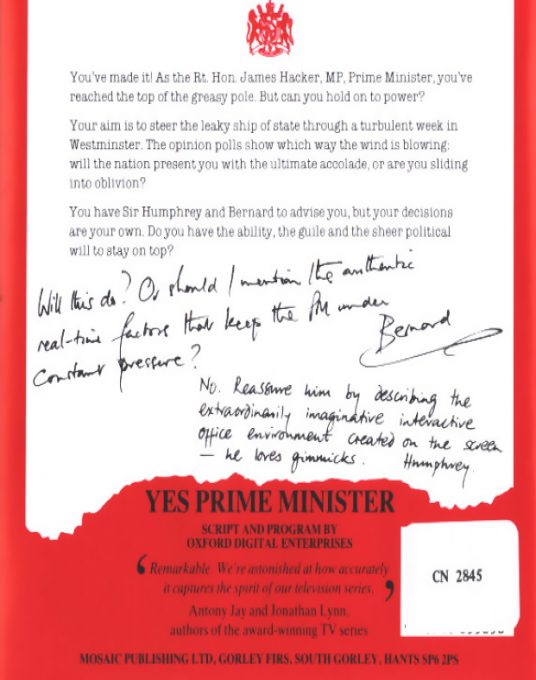 You've made it! As the Rt. Hon. James Hacker, MP, Prime Minister, you've
reached the top of the greasy pole. But can you hold on to power?
Your aim is to steer the leaky ship of state through a turbulent week in
Westminster. The opinion polls show which way the wind is blowing:
will the nation present you with the ultimate accolade, or are you sliding
into oblivion?
You have Sir Humphrey and Bernard to advise you, but your decisions
are your own. Do you have the ability, the guile and the sheer political
will to stay on top?
Will this do? Or should I mention the authentic
real-time factors that keep the PM under
constant pressure?
Bernard
No. Reassure him by describing the
extraordinarily imaginative interactive
office environment created on the screen
— he loves gimmicks. Humphrey.
YES PRIME MINISTER
SCRIPT AND PROGRAM BY
OXFORD DIGITAL ENTERPRISES
‘Remarkable. We're astonished at how accurately
it captures the spirit of our television series.’
Antony Jay and Jonathan Lynn,
authors of the award-winning TV series
CN 2845
MOSAIC PUBLISHING LTD, GORLEY FIRS, SOUTH GORLEY, HANTS SP6 2PS